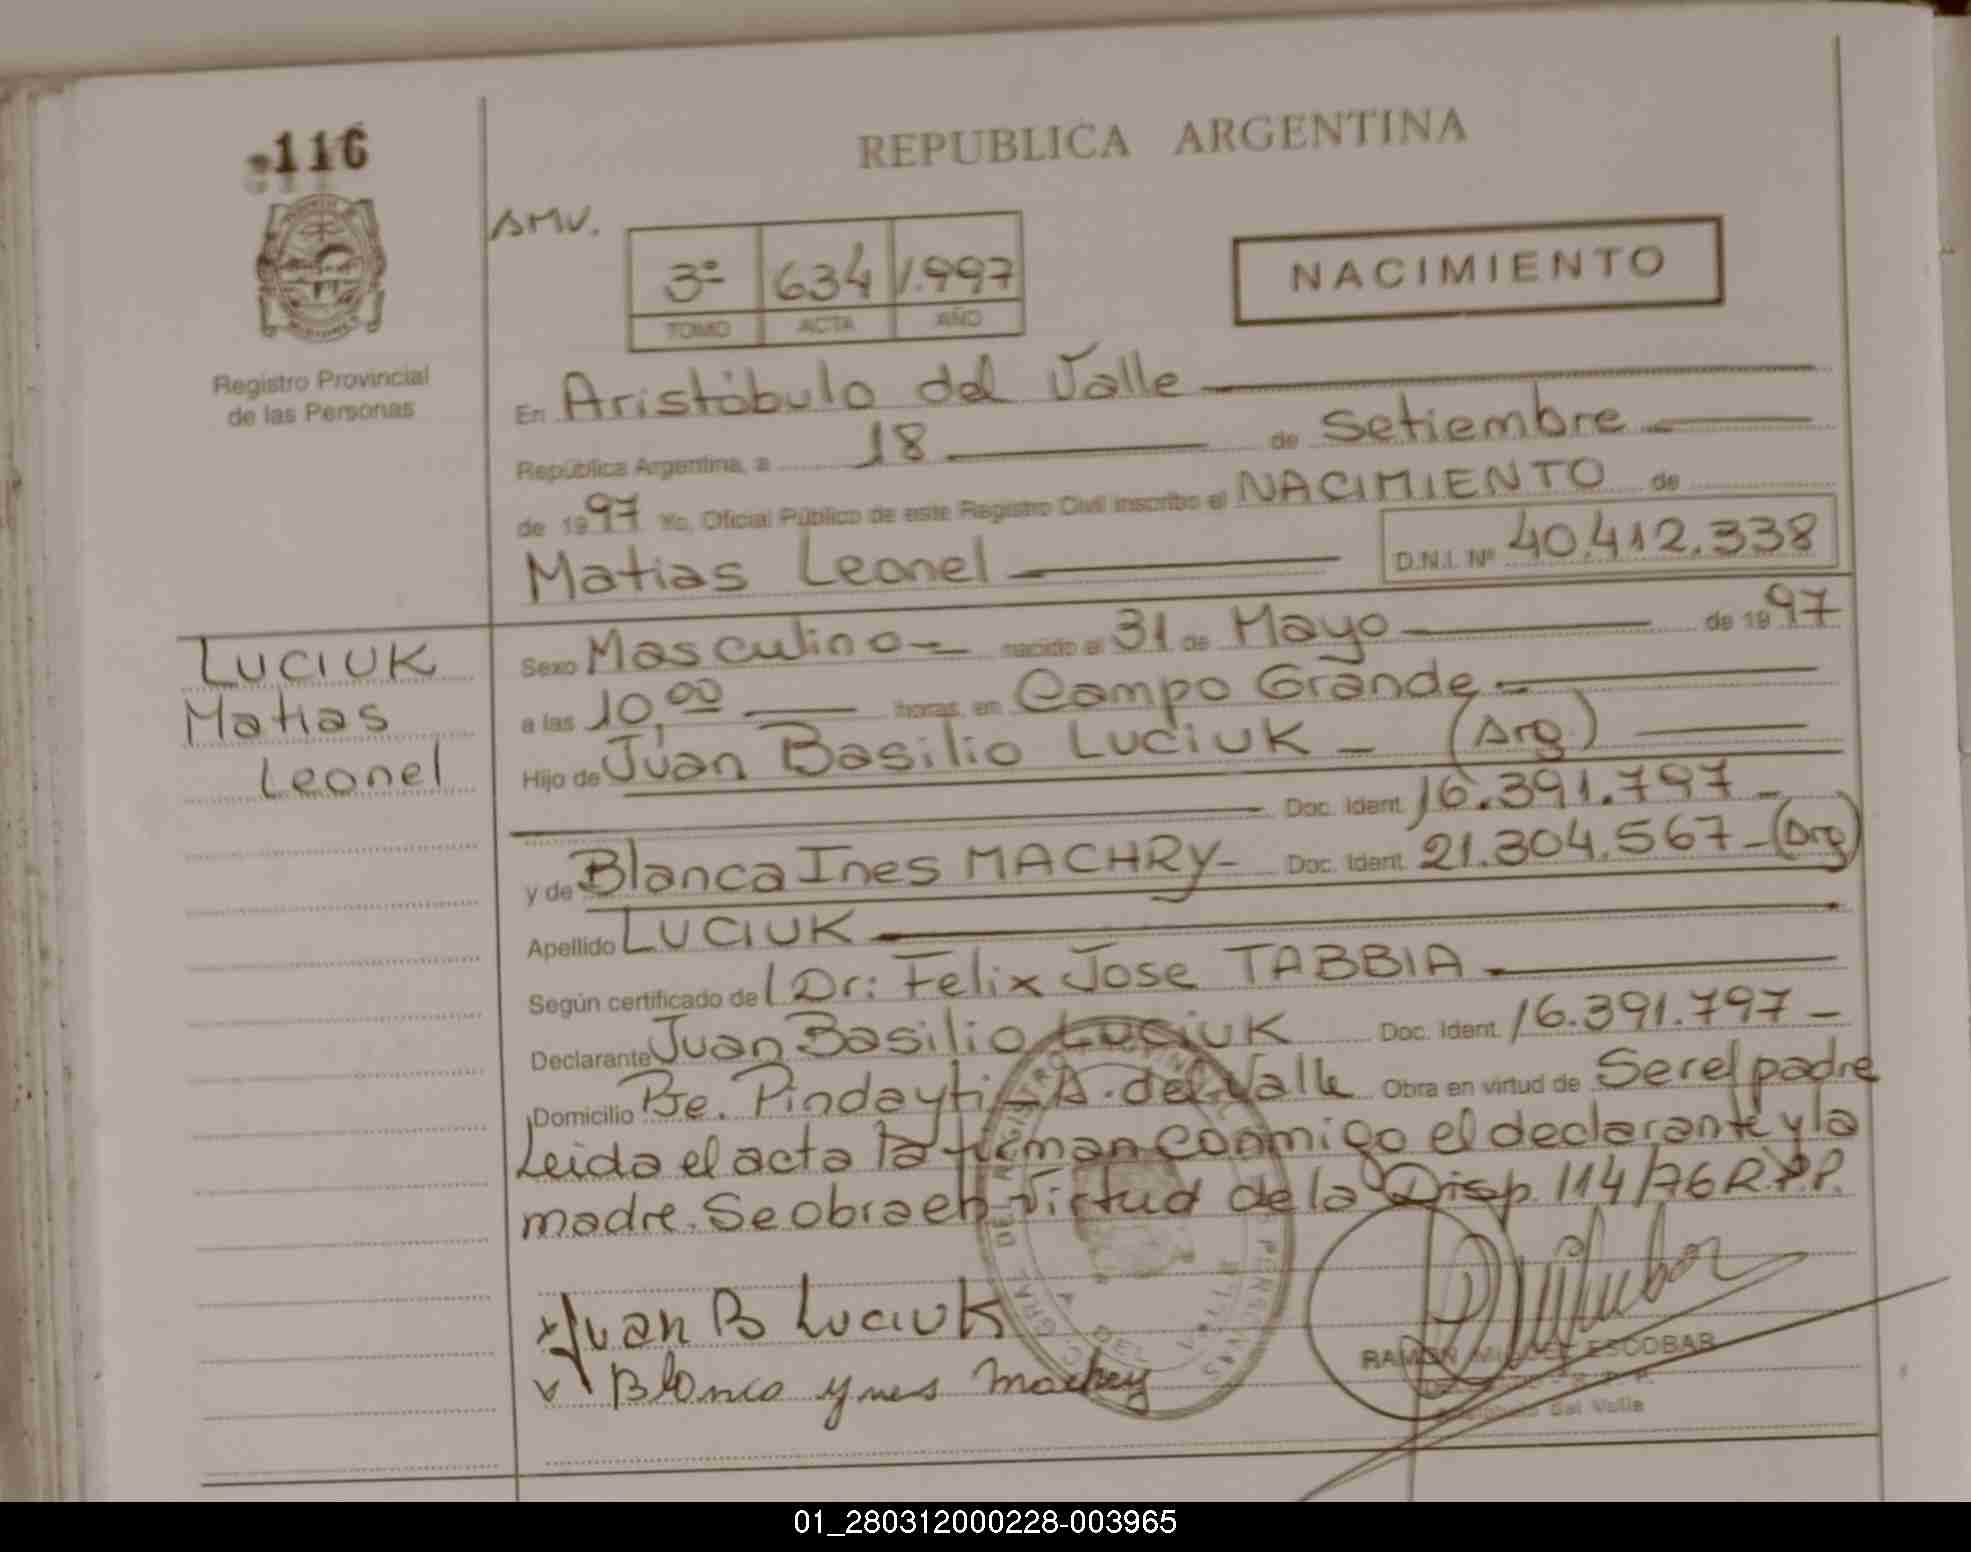 116
REPUBLICA ARGENTINA
AMV.
3º 634 1.997
TOMO ACTA AÑO
NACIMIENTO
Registro Provincial
de las Personas
En Aristóbulo del Valle
República Argentina, a 18 de Setiembre
de 1997 Yo, Oficial Público de este Registro Civil inscribo el NACIMIENTO de
Matias Leonel D.N.I. Nº 40.412.338
LUCIUK
Matias
Leonel
Sexo Masculino nacido el 31 de Mayo de 1997
a las 10,00 horas, en Campo Grande
Hijo de Juan Basilio LUCIUK - (Arg.)
Doc. Ident. 16.391.797-
y de Blanca Ines MACHRY- Doc. Ident. 21.304.567-(Arg)
Apellido LUCIUK
Según certificado del Dr: Felix Jose TABBIA
Declarante Juan Basilio LUCIUK Doc. Ident. 16.391.797-
Domicilio Pje. Pindayti - A. del Valle Obra en virtud de Ser el padre
Leida el acta la firman conmigo el declarante y la
madre. Se obra en Virtud de la Disp. 114/76 R.P.P.
Juan B Luciuk
Blanca Ynes Machry
RAMON MIGUEL ESCOBAR
Del Valle
01_280312000228-003965